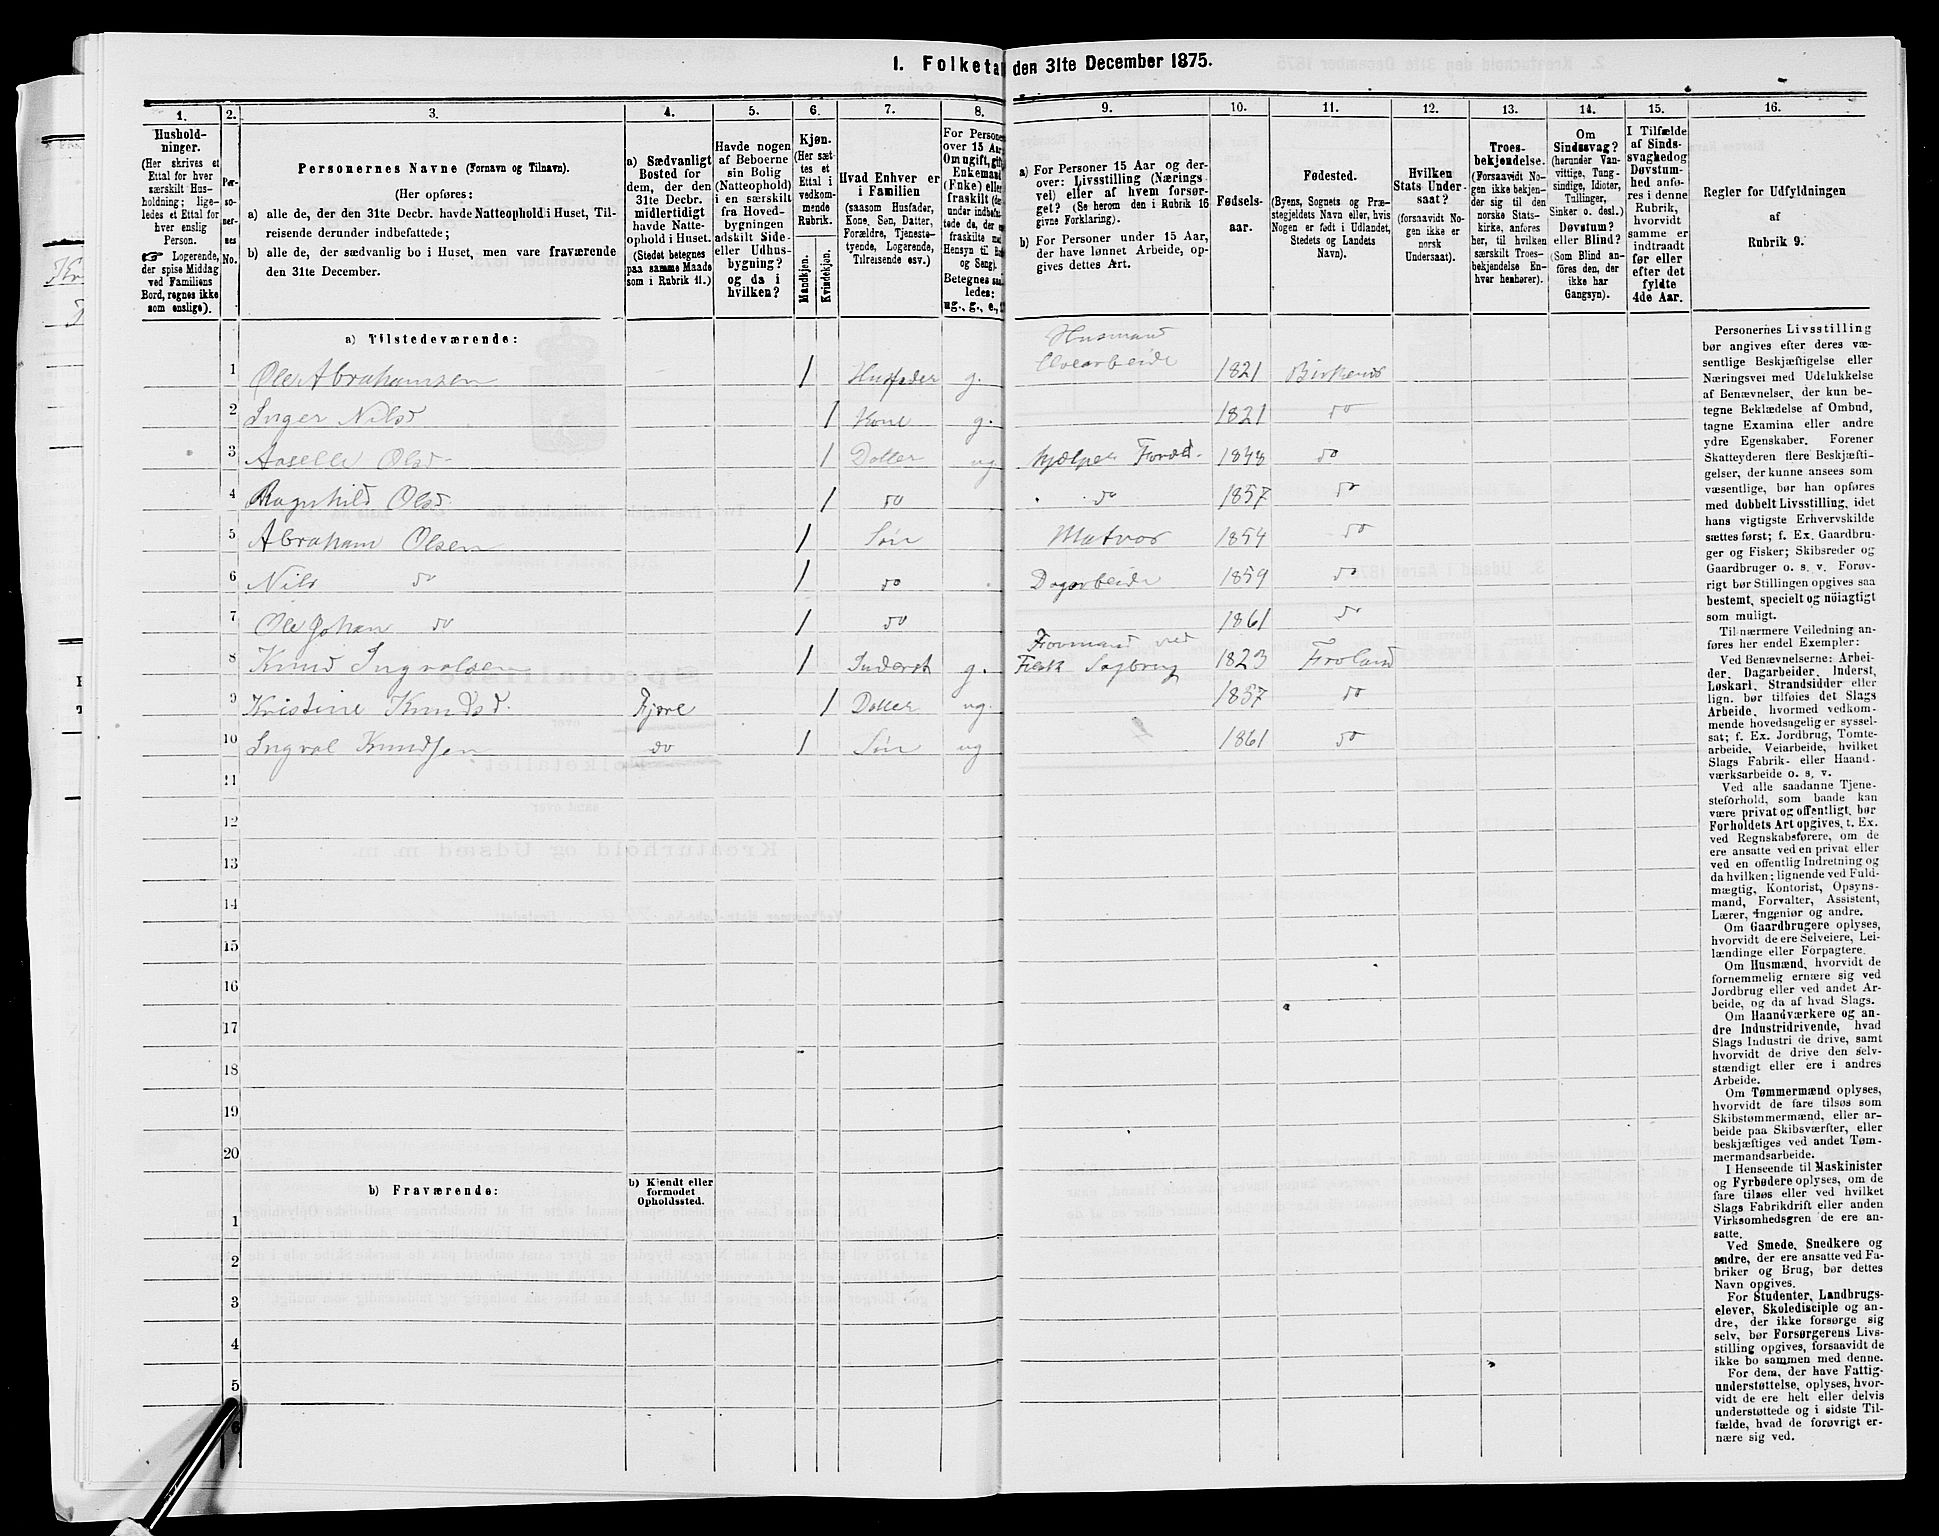 1. Folketa den 31te December 1875.
1. 2. 3. 4. 5. 6. 7. 8. 9. 10. 11. 12. 13. 14. 15. 16.
Hushold-
ninger.
(Her skrives et
Ettal for hver
særskilt Hus-
holdning; lige-
ledes et Ettal for
hver enslig
Person.
☞ Logerende,
der spise Middag
ved Familiens
Bord, regnes ikke
som enslige).
Per-
so-
ner-
nes
No.
Personernes Navne (Fornavn og Tilnavn).
(Her opføres:
a) alle de, der den 31te Decbr. havde Natteophold i Huset, Til-
reisende derunder indbefattede;
b) alle de, der sædvanlig bo i Huset, men vare fraværende
den 31te December.
a) Sædvanligt
Bosted for
dem, der den
31te Decbr.
midlertidigt
havde Natte-
ophold i Huset.
(Stedet betegnes
paa samme Maade
som i Rubrik 11.)
Havde nogen
af Beboerne
sin Bolig
(Natteophold)
i en særskilt
fra Hoved-
bygningen
adskilt Side-
eller Udhus-
bygning?
og da i
hvilken?
Kjøn.
(Her sæt-
tes et
Ettal i
vedkom-
mende
Rubrik.
Mandkjøn.
Kvindekjøn.
Hvad Enhver er
i Familien
(saasom Husfader,
Kone, Søn, Datter,
Forældre, Tjeneste-
tyende, Logerende,
Tilreisende osv.).
For Persone
over 15 Aa
Om ugift, gif
Enkemand
(Enke) elle
fraskilt (der
under indbefat-
tede de, der e
fraskilte m
Hensyn til Bo
og Seng).
Betegnes saa
ledes:
ug., g., e.,
a) For Personer 15 Aar og der-
over: Livsstilling (Nærings-
vei) eller af hvem forsør-
get? (Se herom den i Rubrik 16
givne Forklaring).
b) For Personer under 15 Aar,
der have lønnet Arbeide, op-
gives dettes Art.
Fødsels-
aar.
Fødested.
(Byens, Sognets og Præ-
stegjeldets Navn eller, hvis
Nogen er født i Udlandet,
Stedets og Landets
Navn).
Hvilken
Stats Under-
saat?
(forsaavidt No-
gen ikke er
norsk
Undersaat).
Troes-
bekjendelse.
(Forsaavidt No-
gen ikke bekjen-
der sig til den
norske Stats-
kirke, anføres
her, til hvilken
særskilt Troes-
bekjendelse En-
hver henhører).
Om
Sindssvag?
(herunder Van-
vittige, Tung-
sindige, Idioter,
Tullinger,
Sinker o. desl.)
Døvstum?
eller Blind?
(Som Blind an-
føres den, der
ikke har
Gangsyn).
I Tilfælde
af Sinds-
svaghed og
Døvstum-
hed anfø-
res i denne
Rubrik,
hvorvidt
samme er
indtraadt
før eller
efter det
fyldte
4de Aar.
Regler for Udfyldningen
af
Rubrik 9.
a) Tilstedeværende:
Husmand
1 Ole Abrahamsen 1 Husfader g. Elvearbeide 1821 Birkenes
2 Inger Nilsd 1 Kone g. 1821 do
3 Aaselle Olsd 1 Datter ug Hjælper Foræld. 1848 do
4 Ragnhild Olsd. 1 do do 1857 do
5 Abraham Olsen 1 Søn Matros 1854 do
6 Nils do 1 do Dagarbeide 1859 do
7 Ole Johan do 1 do 1861 do
Formand ved
8 Knud Ingvalsen 1 Inderst g. Sagbrug 1823 Froland
9 Kristine Knudsd. 1 Datter ug. 1857 do
10 Ingval Knudsen do 1 Søn ug 1861 do
11
12
13
14
15
16
17
18
19
20
b) Fraværende:
b) Kjendt eller
formodet
Opholdssted.
1
2
3
4
5
Personernes Livsstilling
bør angives efter deres væ-
sentlige Beskjæftigelse eller
Næringsvei med Udelukkelse
af Benævnelser, der kun be-
tegne Beklædelse af Ombud,
tagne Examina eller andre
ydre Egenskaber. Forener
Skatteyderen flere Beskjæfti-
gelser, der kunne ansees som
væsentlige, bør han opføres
med dobbelt Livsstilling, idet
hans vigtigste Erhvervskilde
sættes først; f. Ex. Gaardbru-
ger og Fisker; Skibsreder og
Gaardbruger o. s. v. Forøv-
rigt bør Stillingen opgives saa
bestemt, specielt og nöiagtigt
som muligt.
Til nærmere Veiledning an-
føres her endel Exempler:
Ved Benævnelserne: Arbei-
der, Dagarbeider, Inderst,
Løskarl, Strandsidder eller
lign. bør tilføies det Slags
Arbeide, hvormed vedkom-
mende hovedsagelig er syssel-
sat; f. Ex. Jordbrug, Tomte-
arbeide, Veiarbeide, hvilket
Slags Fabrik- eller Haand-
værksarbeide o. s. v.
Ved alle saadanne Tjene-
steforhold, som baade kan
være privat og offentligt, bør
Forholdets Art opgives, t. Ex.
ved Regnskabsførere, om de
ere ansatte ved en privat eller
ved en offentlig Indretning og
da hvilken; lignende ved Fuld-
mægtig, Kontorist, Opsyns-
mand, Forvalter, Assistent,
Lærer, Ingeniør og andre.
Om Gaardbrugere oplyses,
hvorvidt de ere Selveiere, Lei-
lændinge eller Forpagtere.
Om Husmænd, hvorvidt de
fornemmelig ernære sig ved
Jordbrug eller ved andet Ar-
beide, og da af hvad Slags.
Om Haandværkere og an-
dre Industridrivende, hvad
Slags Industri de drive, samt
hvorvidt de drive den selv-
stændigt eller ere i andres
Arbeide.
Om Tømmermænd oplyses,
hvorvidt de fare tilsøs som
Skibstømmermænd, eller ar-
beide paa Skibsværfter, eller
beskjæftiges ved andet Tøm-
mermandsarbeide.
I Henseende til Maskinister
og Fyrbødere oplyses, om de
fare tilsøs eller ved hvilket
Slags Fabrikdrift eller anden
Virksomhedsgren de ere an-
satte.
Ved Smede, Snedkere og
andre, der ere ansatte ved Fa-
briker og Brug, bør dettes
Navn opgives.
For Studenter, Landbrugs-
elever, Skoledisciple og an-
dre, der ikke forsørge sig
selv, bør Forsørgerens Livs-
stilling opgives, forsaavidt de
ikke bo sammen med denne.
For dem, der have Fattig-
understøttelse, oplyses, hvor-
vidt de ere helt eller delvis
understøttede og i sidste Til-
fælde, hvad de forøvrigt er-
nære sig ved.